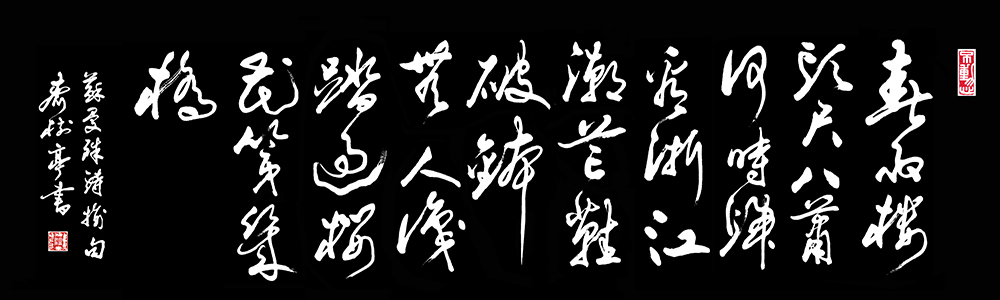 春雨樓
頭尺八蕭
何時歸
看浙江
潮芒鞋
破鉢
無人識
踏過櫻
花第幾
橋
蘇曼殊詩摘句
樹亭書